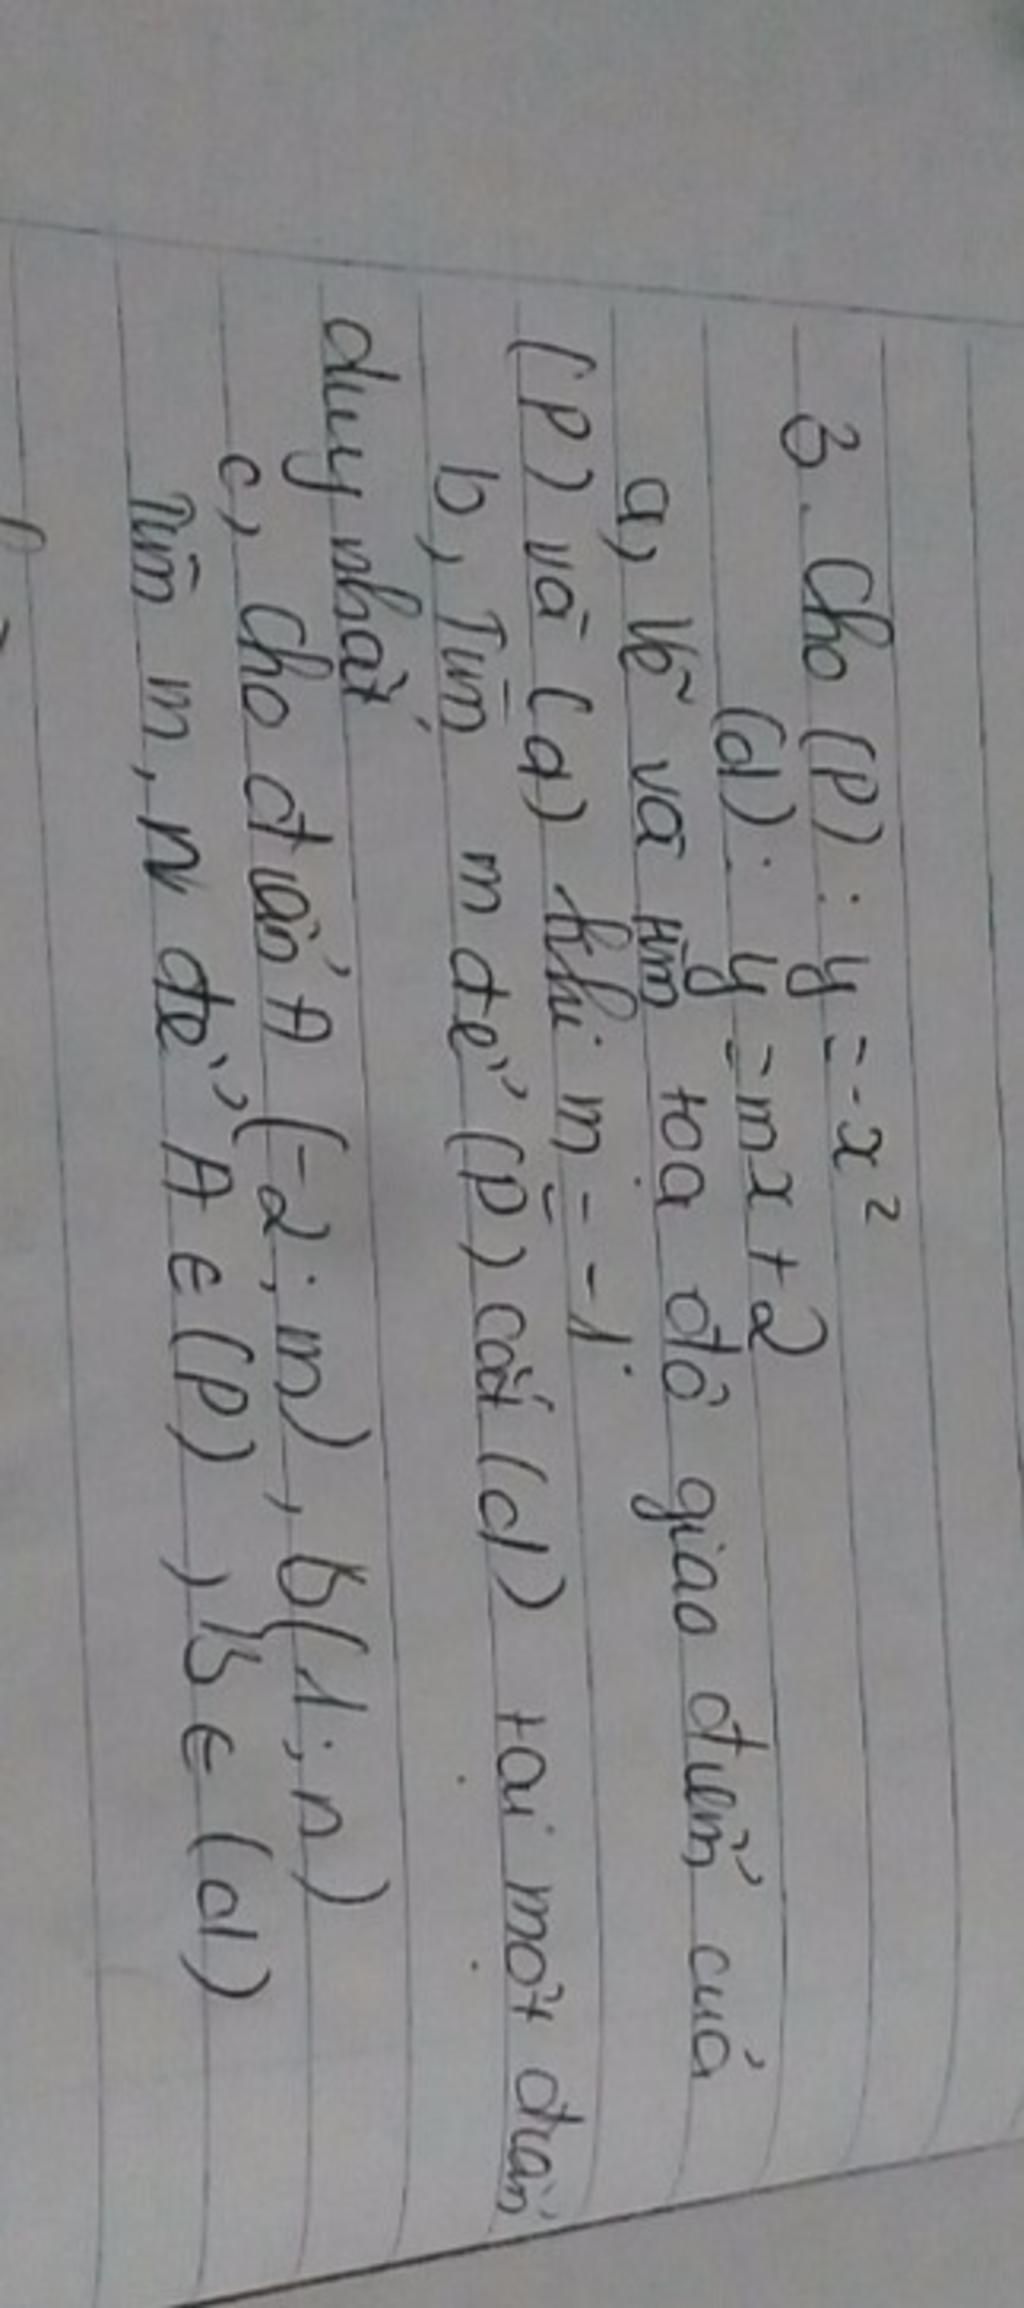 3. Cho (P): y = -x²
(d): y = mx + 2
a, Vẽ và tìm tọa độ giao điểm của
(P) và (d) khi m = -1.
b, Tìm m để (P) cắt (d) tại một điểm
duy nhất
c, Cho điểm A (-2; m), B(1; n)
Tìm m, n để A ∈ (P), B ∈ (d)